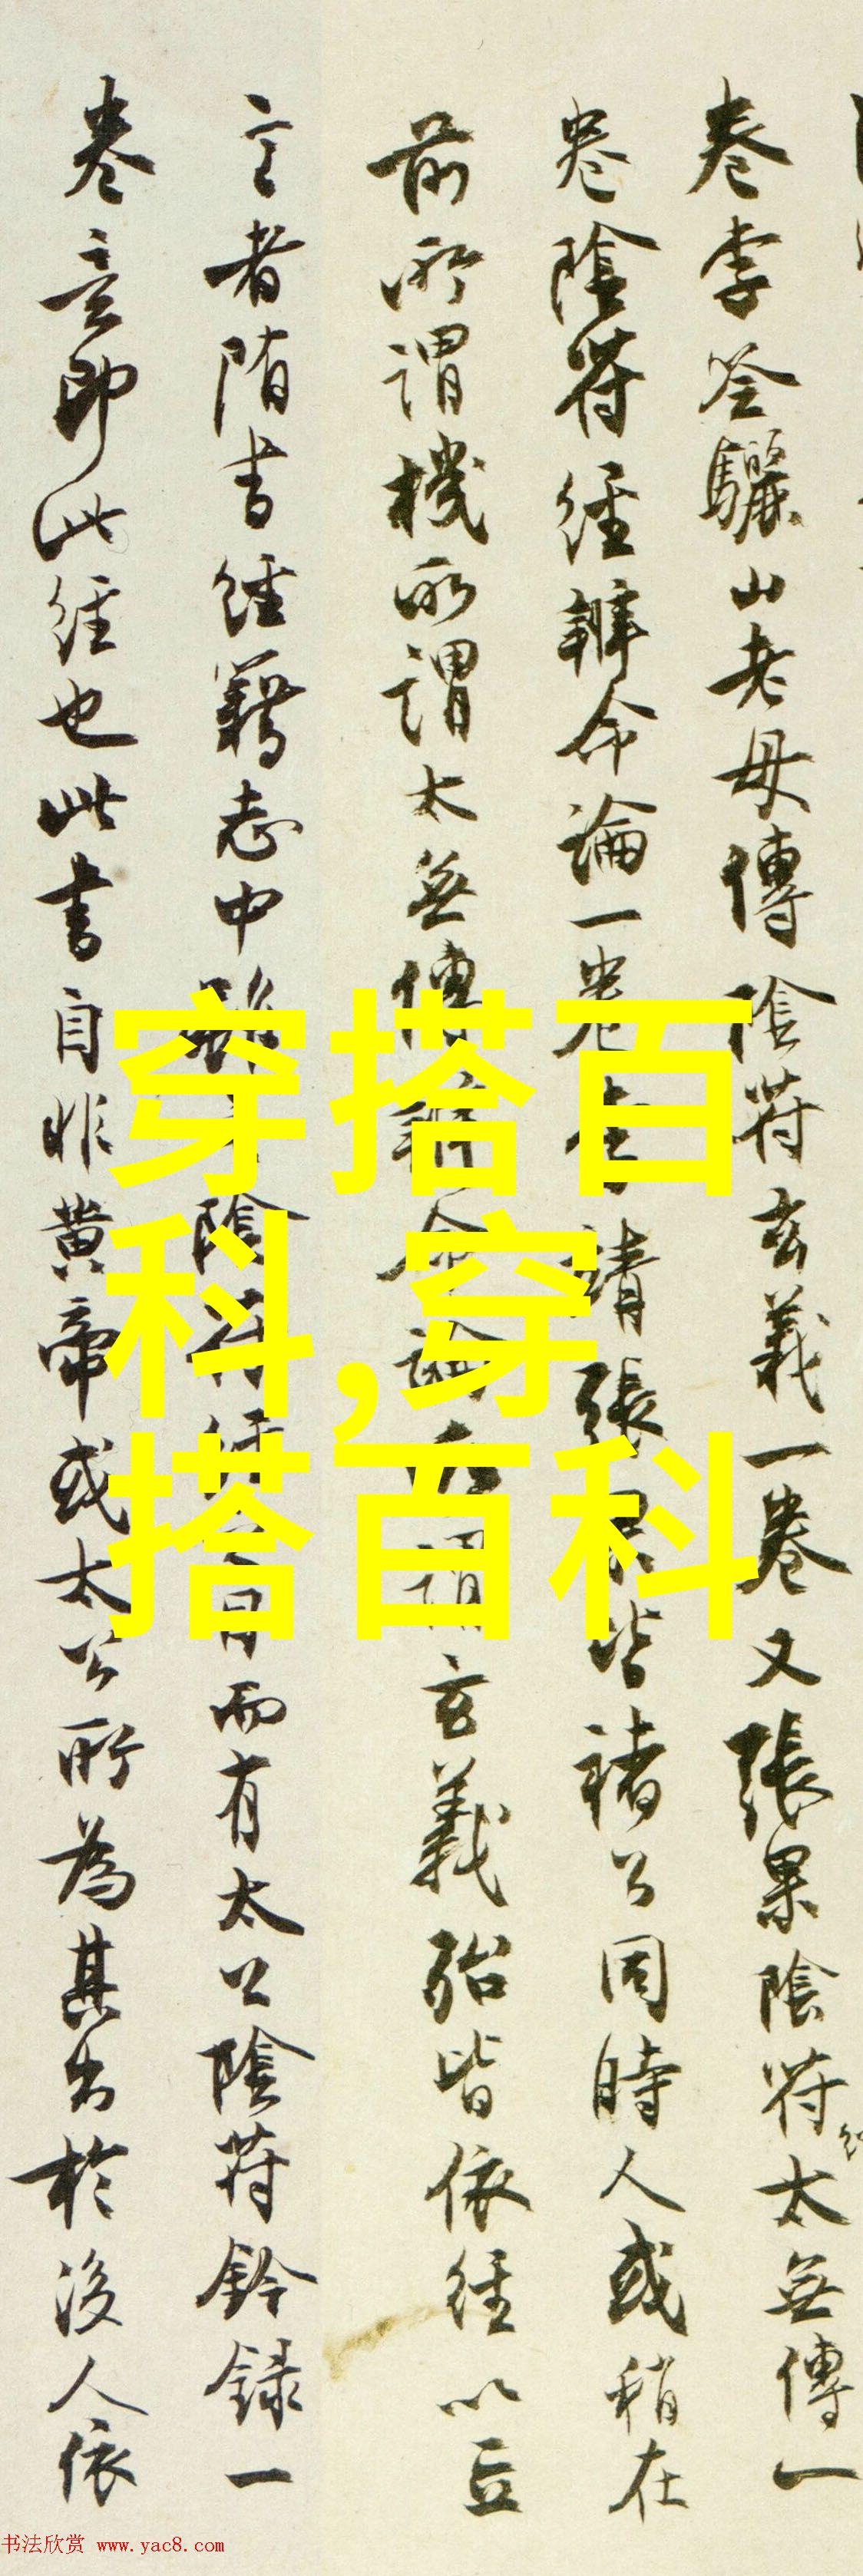 卷李筌驪山老母傳陰符玄義一卷又張果陰符太無傳一
卷陰符經辨命論一卷 靖張 皆褚公同時人或稍在
前所謂機所謂太無傳辨命論所謂玄義殆皆依經以立
言者隋書經籍志中雖 陰符經之目而有太公陰符鈐録一
卷意即此經也此書自非黄帝或太公所為其出於後人依
穿搭百
科,穿
搭百科
书法欣赏 www.yac8.com